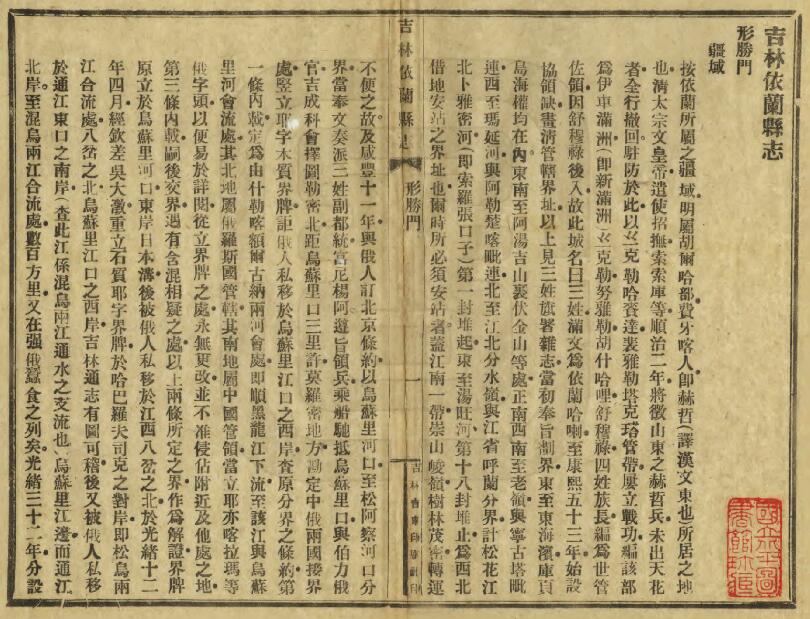 吉林依蘭縣志
形勝門
疆域
按依蘭所屬之疆域明屬胡爾哈部費牙喀人卽赫哲(譯漢文東也)所居之地
也清太宗文皇帝遣使招撫索索庫等順治二年將徵山東之赫哲兵未出天花
者全行撤回駐防於此以㐅克勒哈賚達裴雅勒塔克珞管帶屢立戰功編該部
爲伊車滿洲(卽新滿洲)㐅克勒努雅勒胡什哈哩舒穆祿四姓族長編爲世管
佐領因舒穆祿後入故此城名曰三姓滿文爲依蘭哈喇至康熙五十三年始設
協領缺畫淸管轄界址以上見三姓旗署雜志當初奉旨劃界東至東海濱庫頁
島海權均在內東南至阿湯吉山裏伏金山等處正南西南至老嶺與寧古塔毗
連西至瑪延河與阿勒楚喀毗連北至江北分水嶺與江省呼蘭分界計松花江
北卜雅密河(卽索羅張口子)第一封堆起東至湯旺河第十八封堆止爲西北
借地安站之界址也爾時所必須安站者蓋江南一帶崇山峻嶺樹林茂密轉運
吉林依蘭縣志
形勝門
一
不便之故及咸豐十一年與俄人訂北京條約以烏蘇里河口至松阿察河口分
界當奉文奏派三姓副都統富尼楊阿遵旨領兵乘船馳抵烏蘇里口與伯力俄
官吉成科會擇圖勒密北距烏蘇里口三里許莫羅密地方勘定中俄兩國接界
處竪立耶字木質界牌詎俄人私移於烏蘇里江口之西岸査原分界之條約第
一條內載定爲由什勒喀額爾古納兩河會處卽順黑龍江下流至該江與烏蘇
里河會流處其北地屬俄羅斯國管轄其南地屬中國管領當立耶亦喀拉瑪等
俄字頭以便易於詳閱從立界牌之處永無更改並不准侵佔附近及他處之地
第三條內載嗣後交界遇有含混相疑之處以上兩條所定之界作爲解證界牌
原立於烏蘇里河口東岸日本濤後被俄人私移於江西八岔之北於光緒十二
年四月經欽差吳大澂重立石質耶字界牌於哈巴羅夫司克之對岸卽松烏兩
江合流處八岔之北烏蘇里江口之西岸吉林通志有圖可稽後又被俄人私移
於通江東口之南岸(査此江係混烏兩江通水之支流也)烏蘇里江邊而通江
北岸至混烏兩江合流處數百方里又在强俄蠶食之列矣光緒三十二年分設